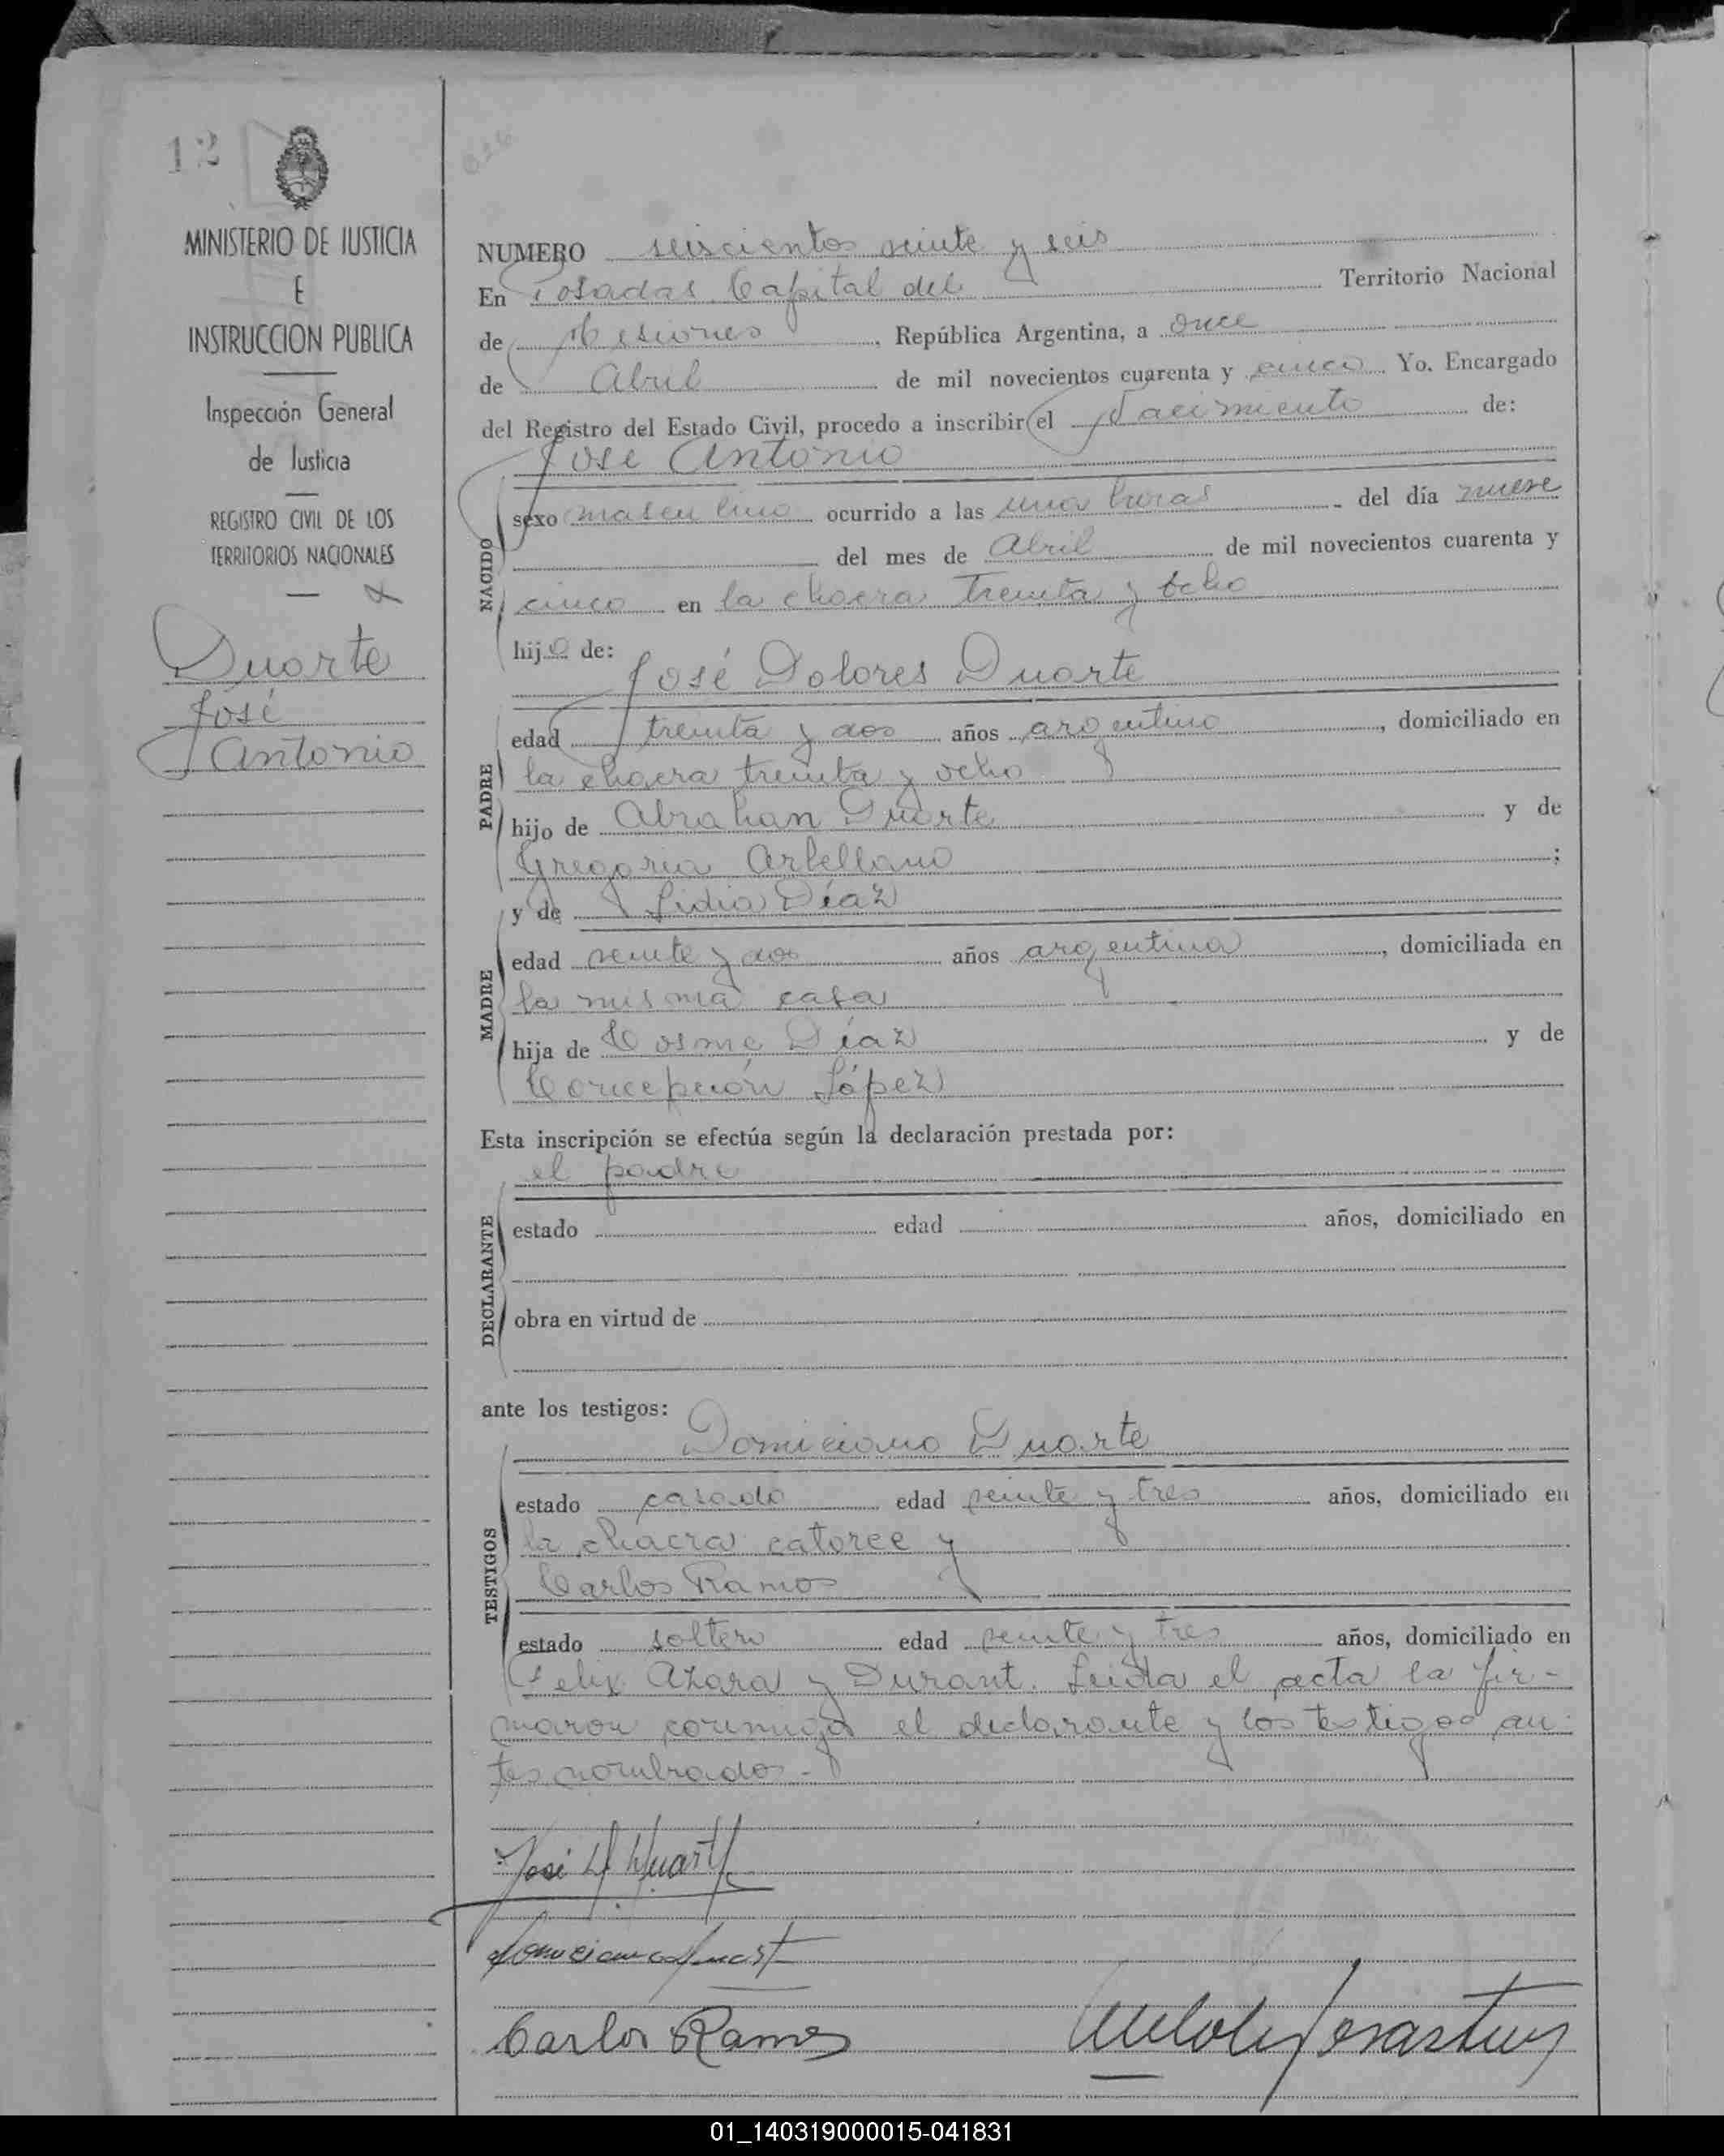 12
626
MINISTERIO DE JUSTICIA
E
INSTRUCCION PUBLICA
Inspección General
de Justicia
REGISTRO CIVIL DE LOS
TERRITORIOS NACIONALES
Duarte
José
Antonio
NUMERO seiscientos veinte y seis
En Posadas Capital del Territorio Nacional
de Misiones, República Argentina, a once
de Abril de mil novecientos cuarenta y cinco Yo. Encargado
del Registro del Estado Civil, procedo a inscribir el Nacimiento de:
José Antonio
NACIDO
sexo masculino ocurrido a las una horas del día nueve
del mes de Abril de mil novecientos cuarenta y
cinco en la chacra treinta y ocho
hijo de:
José Dolores Duarte
PADRE
edad treinta y dos años argentino, domiciliado en
la chacra treinta y ocho
hijo de Abrahan Duarte y de
Gregoria Arbellano;
y de Lidia Díaz
MADRE
edad veinte y dos años argentina, domiciliada en
la misma casa
hija de Cosme Díaz y de
Concepción López
Esta inscripción se efectúa según la declaración prestada por:
el padre
DECLARANTE
estado edad años, domiciliado en
obra en virtud de
ante los testigos:
Domiciano Duarte
TESTIGOS
estado casado edad veinte y tres años, domiciliado en
la chacra catorce y
Carlos Ramos
estado soltero edad veinte y tres años, domiciliado en
Felix Azara y Durant. Leida el acta la fir-
maron conmigo el declarante y los testigos an-
tes nombrados.-
José D. Duarte
Domiciano Duarte
Carlos Ramos
01_140319000015-041831